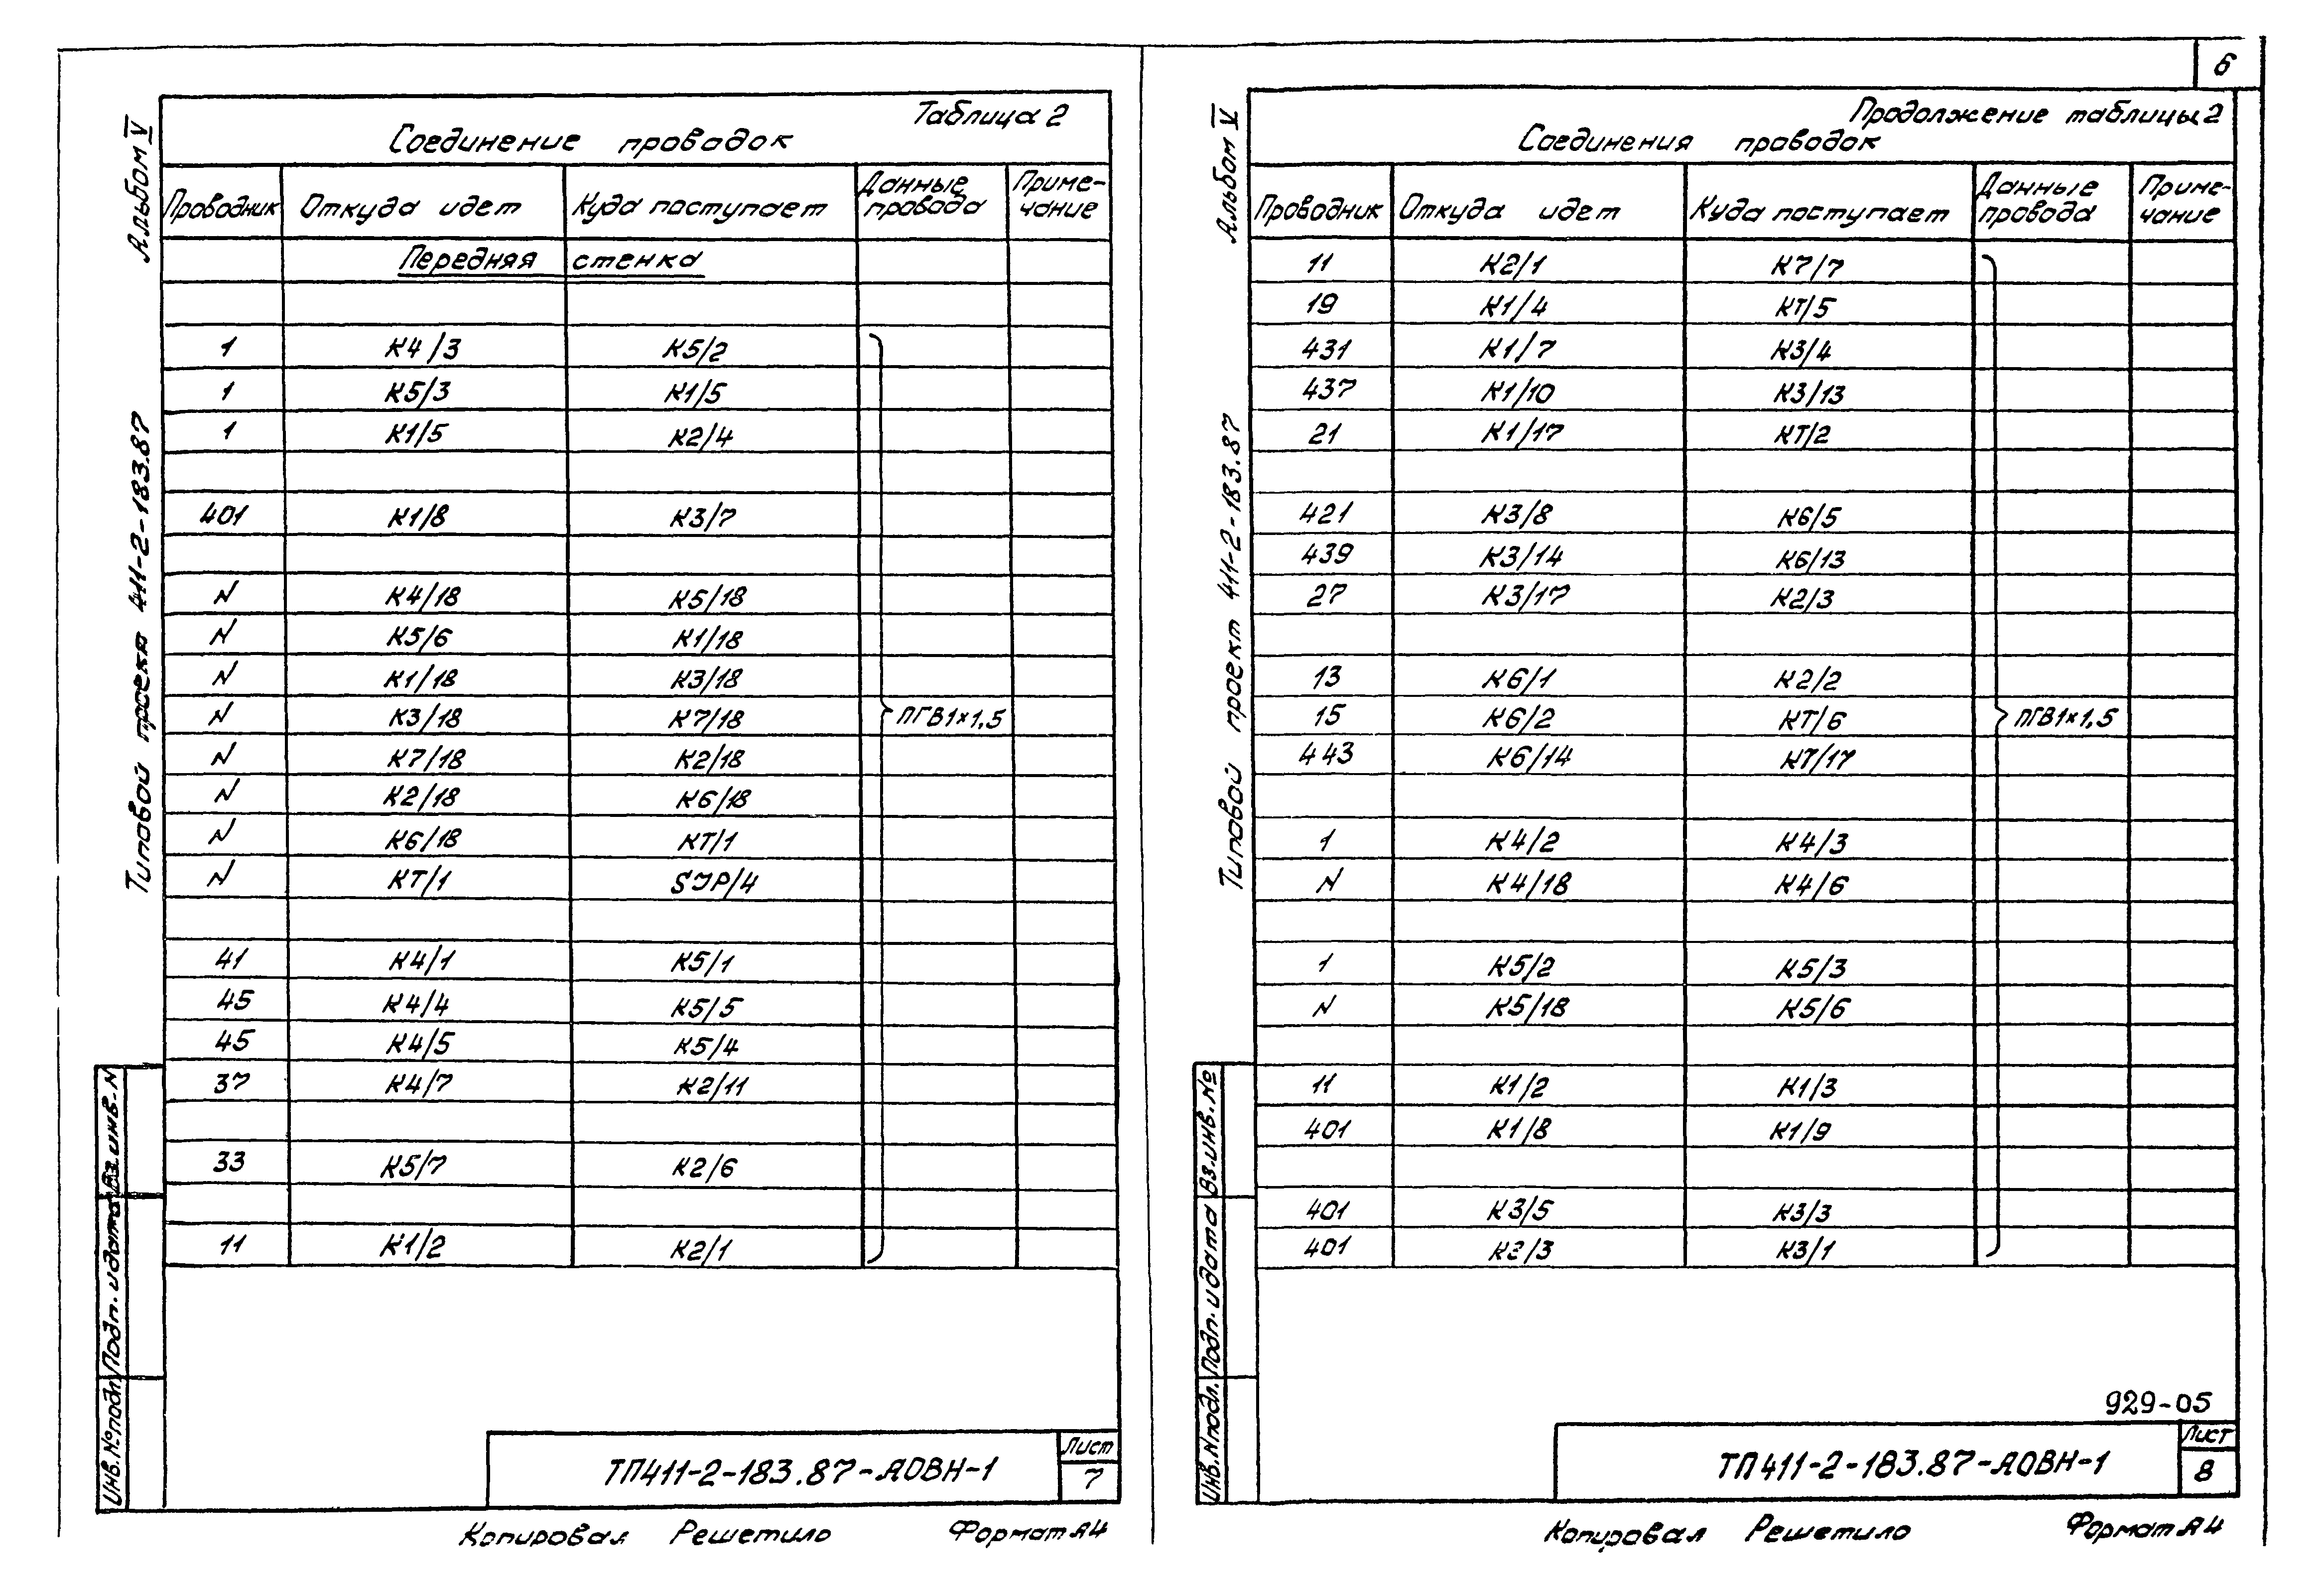 6
Альбом V
Типовой проект 411-2-183.87
Таблица 2
Соединение проводок
Проводник Откуда идет Куда поступает Данные провода Приме-чание
Передняя стенка
1 К4/3 К5/2
1 К5/3 К1/5
1 К1/5 К2/4
401 К1/8 К3/7
N К4/18 К5/18
N К5/6 К1/18
N К1/18 К3/18
N К3/18 К7/18 ПГВ1×1,5
N К7/18 К2/18
N К2/18 К6/18
N К6/18 КТ/1
N КТ/1 SJP/4
41 К4/1 К5/1
45 К4/4 К5/5
45 К4/5 К5/4
37 К4/7 К2/11
33 К5/7 К2/6
11 К1/2 К2/1
Инв.№подл Подп. и дата Вз.инв.N
ТП411-2-183.87-АОВН-1
Лист
7
Копировал Решетило Формат А4
Альбом V
Типовой проект 411-2-183.87
Продолжение таблицы 2
Соединения проводок
Проводник Откуда идет Куда поступает Данные провода Приме-чание
11 К2/1 К7/7
19 К1/4 КТ/5
431 К1/7 К3/4
437 К1/10 К3/13
21 К1/17 КТ/2
421 К3/8 К6/5
439 К3/14 К6/13
27 К3/17 К2/3
13 К6/1 К2/2
15 К6/2 КТ/6 ПГВ1×1,5
443 К6/14 К7/17
1 К4/2 К4/3
N К4/18 К4/6
1 К5/2 К5/3
N К5/18 К5/6
11 К1/2 К1/3
401 К1/8 К1/9
401 К3/5 К3/3
401 К3/3 К3/1
Инв.Nподл. Подп. и дата Вз.инв.№
929-05
ТП411-2-183.87-АОВН-1
Лист
8
Копировал Решетило Формат А4